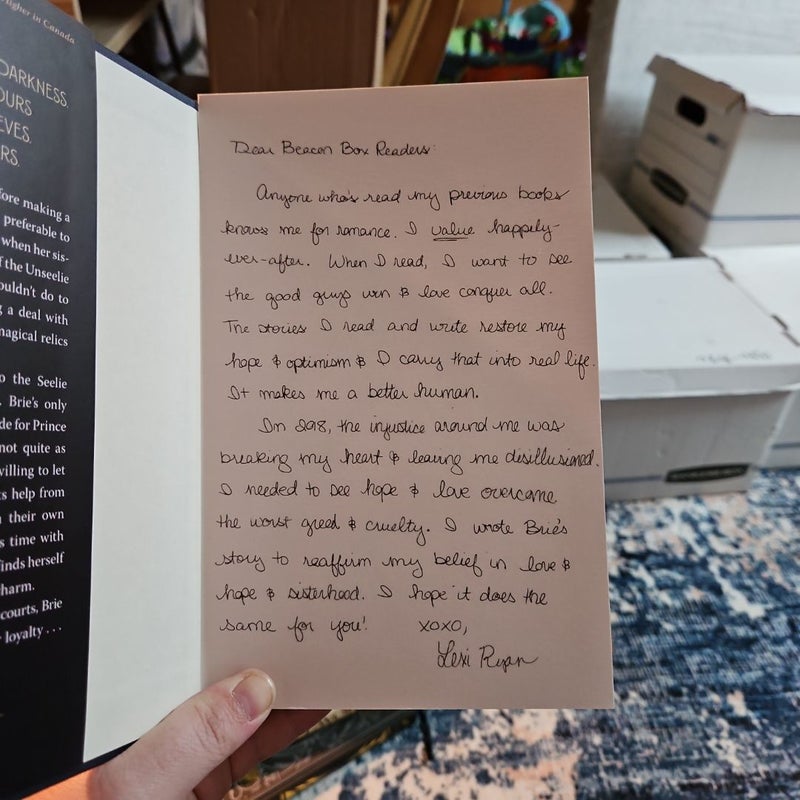 Higher in Canada
DARKNESS.
OURS
EVES.
RS.
fore making a
preferable to
when her sis-
f the Unseelie
ouldn't do to
g a deal with
magical relics
o the Seelie
. Brie's only
de for Prince
not quite as
willing to let
s help from
their own
s time with
finds herself
harm.
courts, Brie
loyalty . . .
Dear Beacon Box Readers:
Anyone who's read my previous books
knows me for romance. I value happily-
ever-after. When I read, I want to see
the good guys win & love conquer all.
The stories I read and write restore my
hope & optimism & I carry that into real life.
It makes me a better human.
In 2018, the injustice around me was
breaking my heart & leaving me disillusioned.
I needed to see hope & love overcome
the worst greed & cruelty. I wrote Brie's
story to reaffirm my belief in love &
hope & sisterhood. I hope it does the
same for you! xoxo,
Lexi Ryan